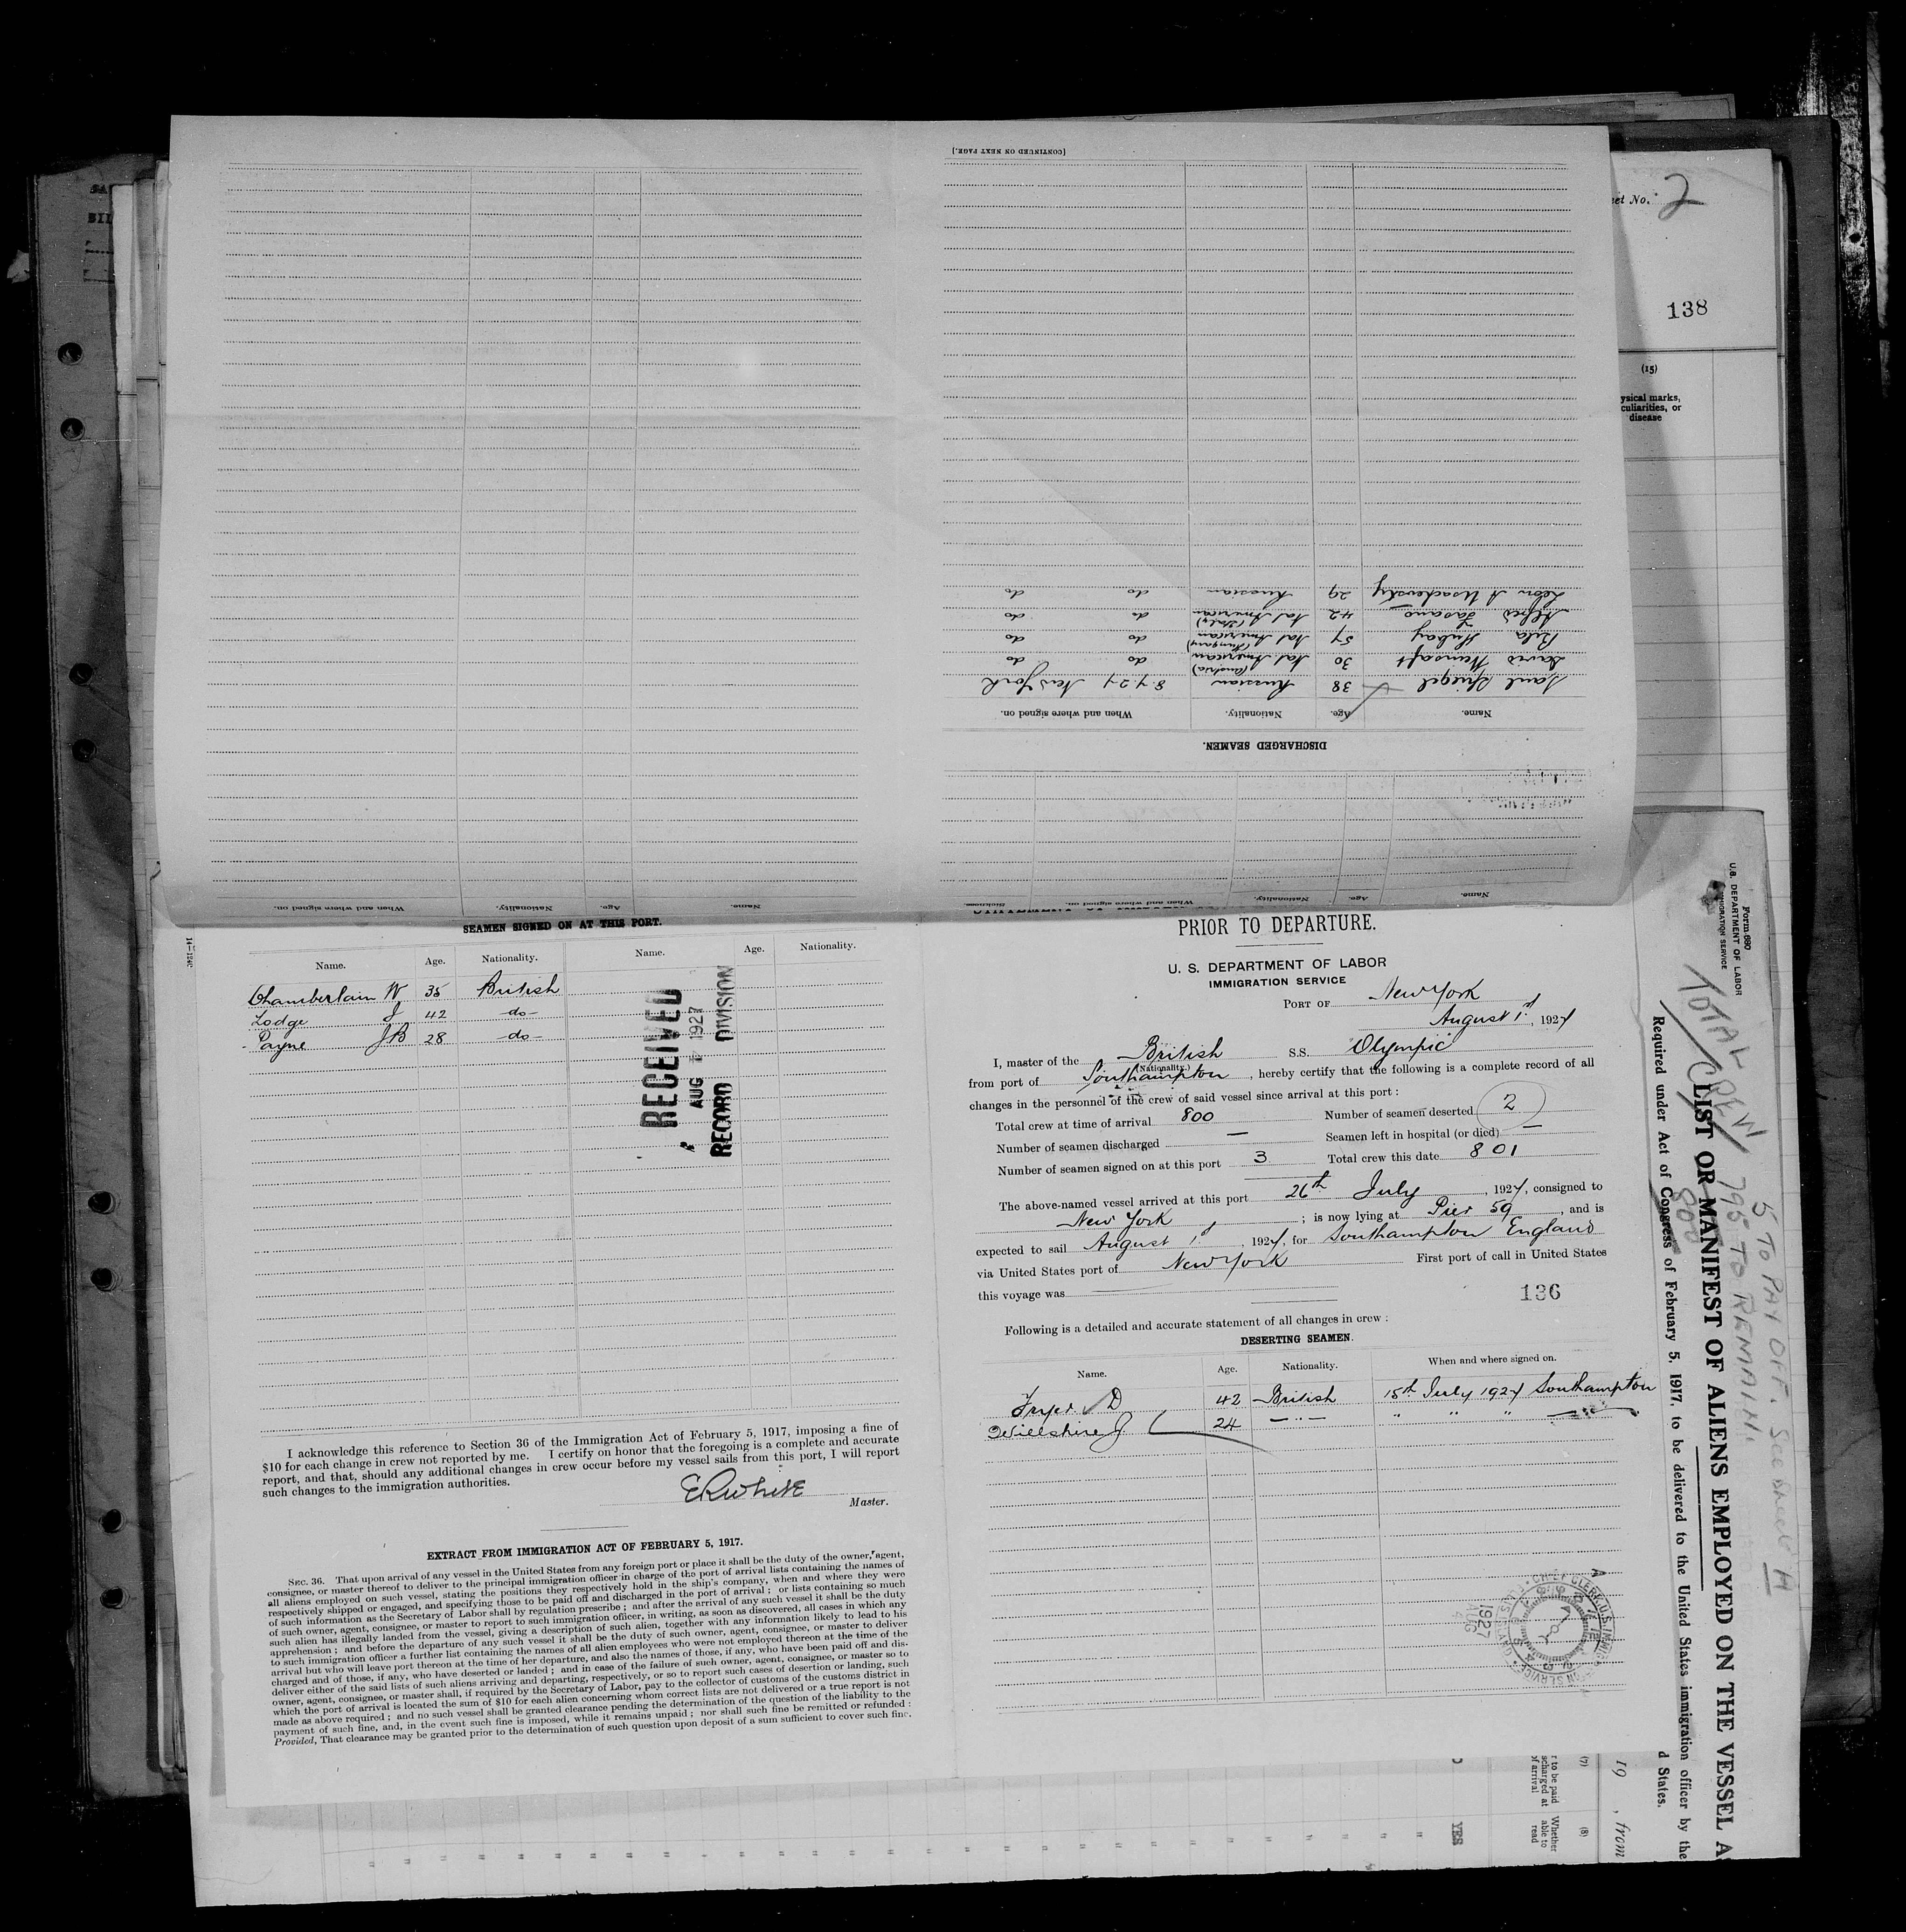 [CONTINUED ON NEXT PAGE.]
Leon A 29 Russian do do
Alfred Fasano 42 Nat American (Italy) do do
Bela Hubay 54 Nat American (Hungary) do do
David 30 Nat American (Austria) do do
Saul Spiegel 38 Russian 8.7.27 New York
Name. Age. Nationality. When and where signed on.
DISCHARGED SEAMEN.
Name. Age. Nationality. When and where signed on. Sickness.
Name. Age. Nationality. When and where signed on.
eet No. 2
138
(15)
ysical marks,
culiarities, or
disease
14—1240
SEAMEN SIGNED ON AT THIS PORT.
Name. Age. Nationality. Name. Age. Nationality.
Chamberlain W 35 British
Lodge J 42 -do-
Payne JB 28 -do-
RECEIVED
AUG 1927
RECORD DIVISION
I acknowledge this reference to Section 36 of the Immigration Act of February 5, 1917, imposing a fine of
$10 for each change in crew not reported by me. I certify on honor that the foregoing is a complete and accurate
report, and that, should any additional changes in crew occur before my vessel sails from this port, I will report
such changes to the immigration authorities.
ERWhite
Master.
EXTRACT FROM IMMIGRATION ACT OF FEBRUARY 5, 1917.
SEC. 36. That upon arrival of any vessel in the United States from any foreign port or place it shall be the duty of the owner, agent,
consignee, or master thereof to deliver to the principal immigration officer in charge of the port of arrival lists containing the names of
all aliens employed on such vessel, stating the positions they respectively hold in the ship's company, when and where they were
respectively shipped or engaged, and specifying those to be paid off and discharged in the port of arrival; or lists containing so much
of such information as the Secretary of Labor shall by regulation prescribe; and after the arrival of any such vessel it shall be the duty
of such owner, agent, consignee, or master to report to such immigration officer, in writing, as soon as discovered, all cases in which any
such alien has illegally landed from the vessel, giving a description of such alien, together with any information likely to lead to his
apprehension; and before the departure of any such vessel it shall be the duty of such owner, agent, consignee, or master to deliver
to such immigration officer a further list containing the names of all alien employees who were not employed thereon at the time of the
arrival but who will leave port thereon at the time of her departure, and also the names of those, if any, who have been paid off and dis-
charged and of those, if any, who have deserted or landed; and in case of the failure of such owner, agent, consignee, or master so to
deliver either of the said lists of such aliens arriving and departing, respectively, or so to report such cases of desertion or landing, such
owner, agent, consignee, or master shall, if required by the Secretary of Labor, pay to the collector of customs of the customs district in
which the port of arrival is located the sum of $10 for each alien concerning whom correct lists are not delivered or a true report is not
made as above required; and no such vessel shall be granted clearance pending the determination of the question of the liability to the
payment of such fine, and, in the event such fine is imposed, while it remains unpaid; nor shall such fine be remitted or refunded:
Provided, That clearance may be granted prior to the determination of such question upon deposit of a sum sufficient to cover such fine.
PRIOR TO DEPARTURE.
U. S. DEPARTMENT OF LABOR
IMMIGRATION SERVICE
PORT OF New York
August 1st, 1927
I, master of the British S.S. Olympic
(Nationality.)
from port of Southampton, hereby certify that the following is a complete record of all
changes in the personnel of the crew of said vessel since arrival at this port:
Total crew at time of arrival 800 Number of seamen deserted 2
Number of seamen discharged — Seamen left in hospital (or died) —
Number of seamen signed on at this port 3 Total crew this date 801
The above-named vessel arrived at this port 26th July, 1927, consigned to
New York; is now lying at Pier 59, and is
expected to sail August 1st, 1927, for Southampton England
via United States port of New York First port of call in United States
this voyage was
136
Following is a detailed and accurate statement of all changes in crew:
DESERTING SEAMEN.
Name. Age. Nationality. When and where signed on.
D 42 British 15th July 1927 Southampton
Willshire J 24 — " — " " " — " —
1927
AUG
Form 680
U.S. DEPARTMENT OF LABOR
IMMIGRATION SERVICE
TOTAL CREW 800
5 TO PAY OFF. See sheet H
795 TO REMAIN.
LIST OR MANIFEST OF ALIENS EMPLOYED ON THE VESSEL A
Required under Act of Congress of February 5, 1917, to be delivered to the United States immigration officer by the
d States.
19 , from
(7)
r to be paid
scharged at
of arrival
(8)
Whether
able to
read
YES